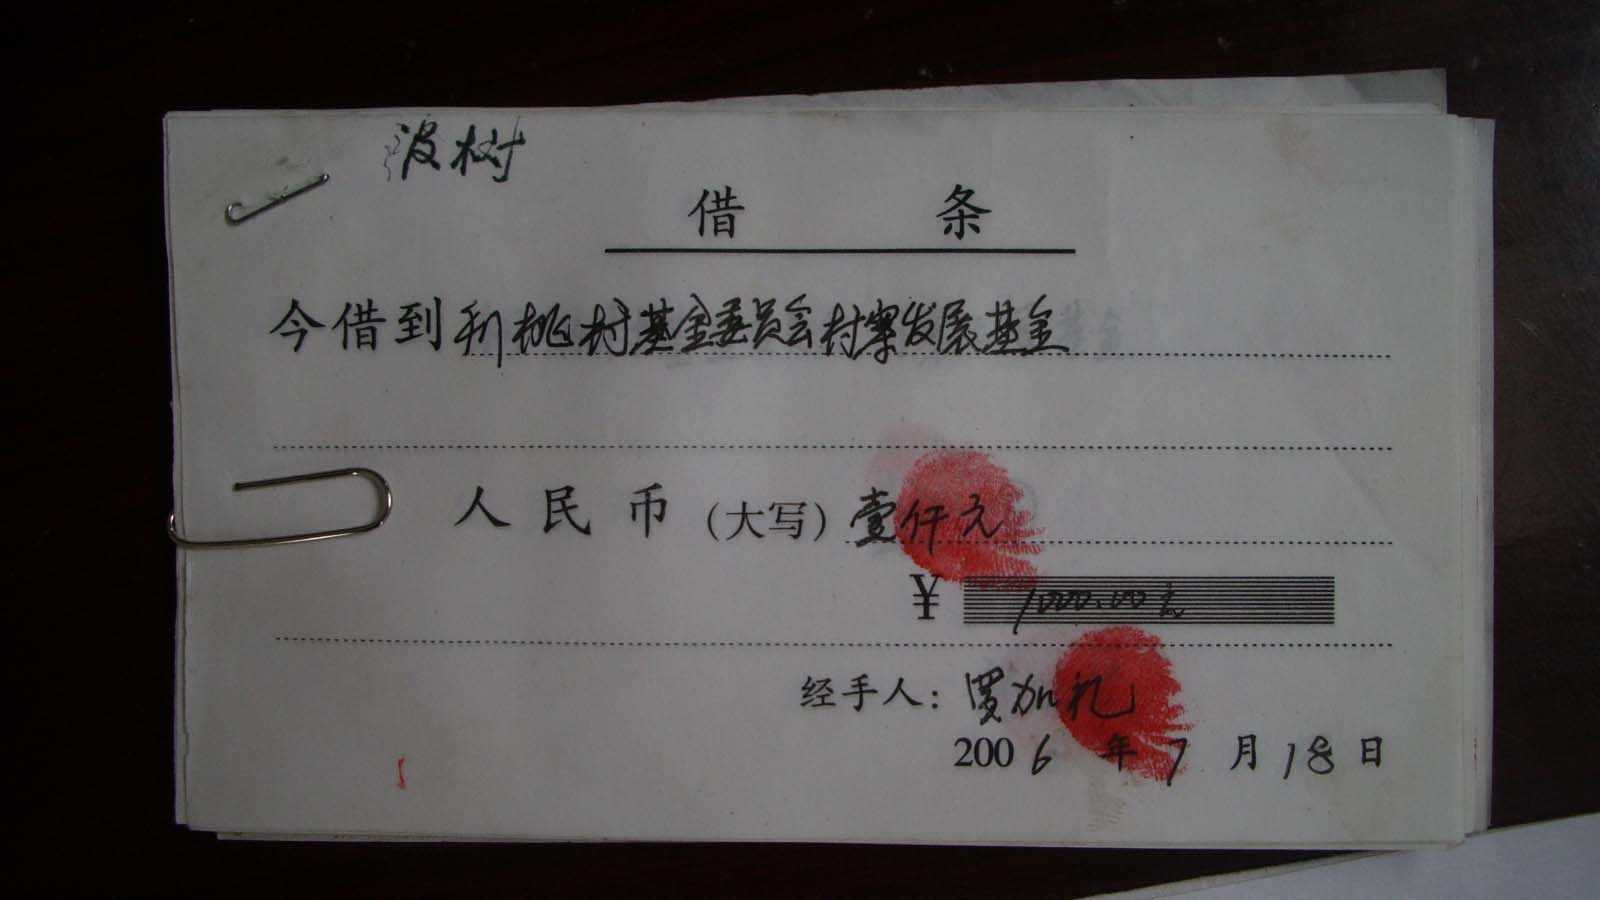 波树
借 条
今借到利桃村基金委员会村寨发展基金
人民币（大写）壹仟元
¥ 1000.00元
经手人：罗加礼
2006年7月18日